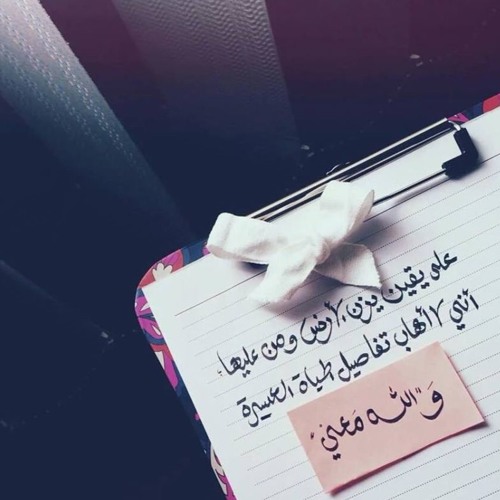 على يقين يزن الأرض ومن عليها،
أنني لا أهاب تفاصيل الحياة العسيرة
وَ "الله مَعي"